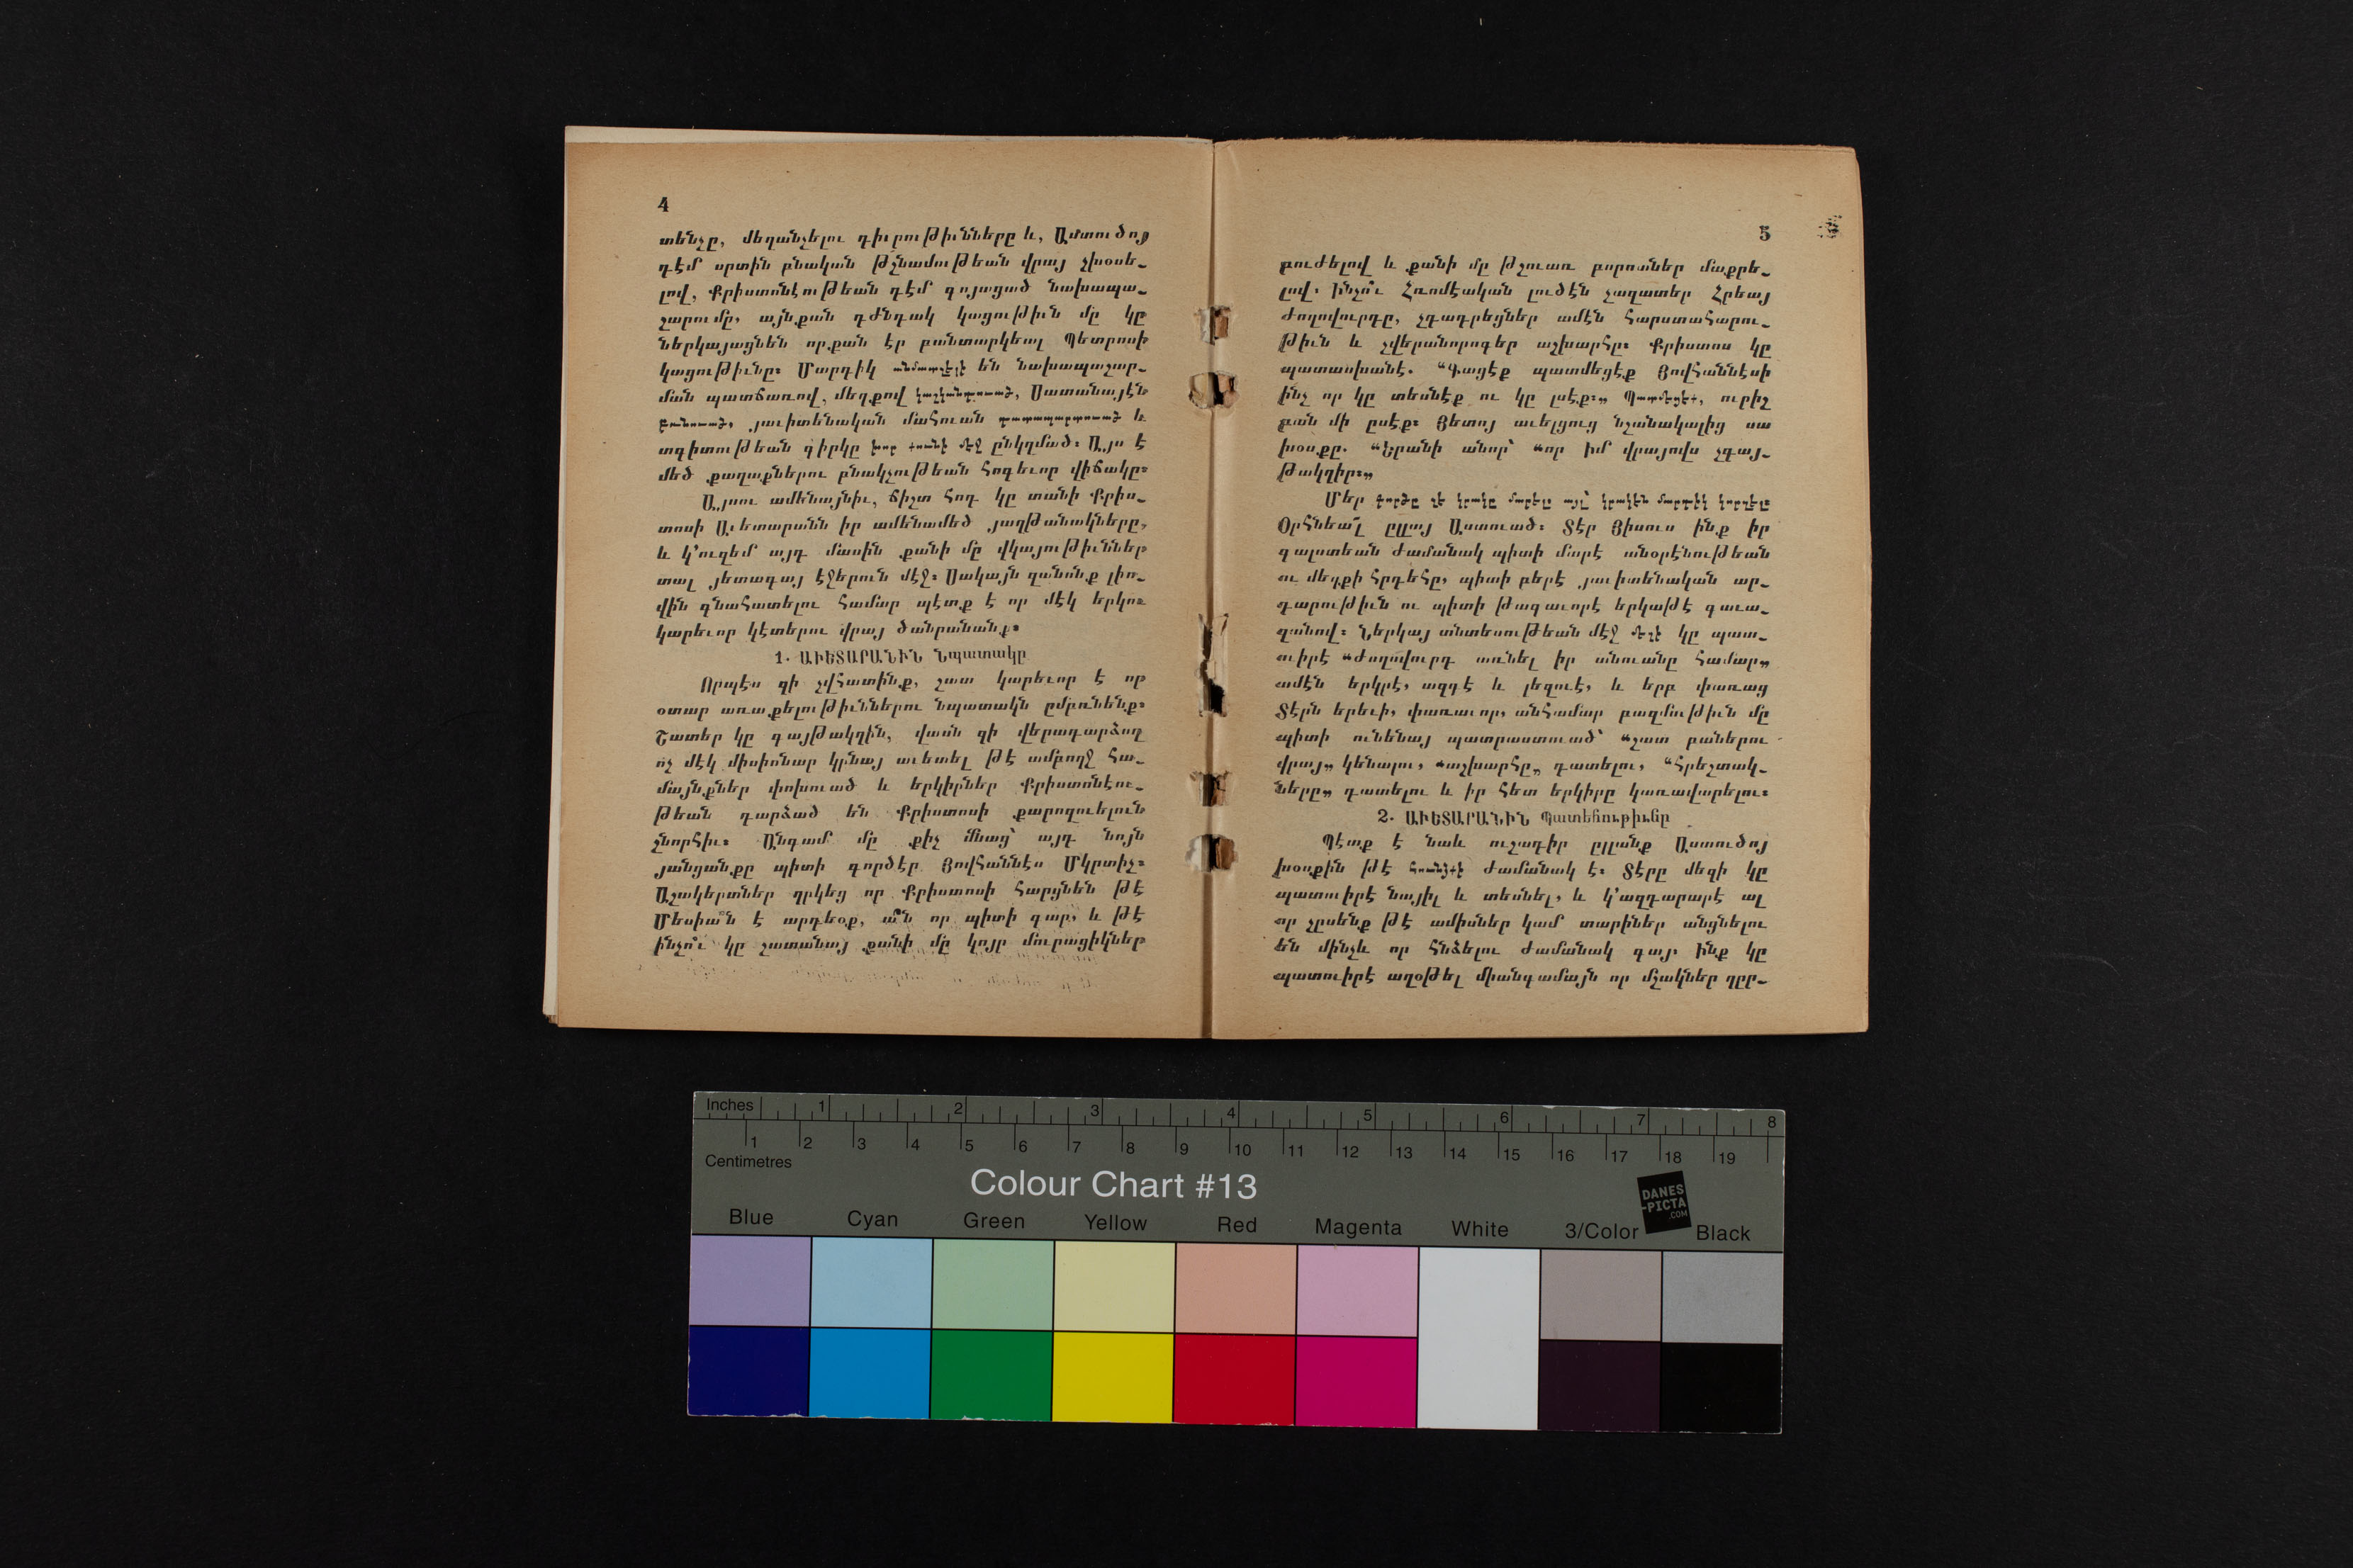 4
տենչը, մեղանչելու դիւրութիւնները և, Աստուծոյ
դէմ սրտին բնական թշնամութեան վրայ չխօսե_
լով, Քրիստոնէութեան դէմ գոյացած նախապա_
շարումը, այնքան դժնդակ կացութիւն մը կը
ներկայացնեն որքան էր բանտարկեալ Պետրոսի
կացութիւնը։ Մարդիկ անմատչելի են նախապաշար_
ման պատճառով, մեղքով կաշկանդուած, Սատանայէն
բռնուած, յաւիտենական մահուան դատապարտուած և
տգիտութեան գիրկը խոր քունի մէջ ընկղմած։ Այս է
մեծ քաղաքներու բնակչութեան հոգեւոր վիճակը։
Այսու ամենայնիւ, ճիշտ հոդ կը տանի Քրիս_
տոսի Աւետարանն իր ամենամեծ յաղթանակները,
և կ՚ուզեմ այդ մասին քանի մը վկայութիւններ
տալ յետագայ էջերուն մէջ։ Սակայն զանոնք լիո_
վին գնահատելու համար պէտք է որ մէկ երկու
կարեւոր կէտերու վրայ ծանրանանք։
1. ԱՒԵՏԱՐԱՆԻՆ Նպատակը
Որպէս զի չվհատինք, շատ կարեւոր է որ
օտար առաքելութիւններու նպատակն ըմբռնենք։
Շատեր կը գայթակղին, վասն զի վերադարձող
ոչ մէկ միսիոնար կրնայ աւետել թէ ամբողջ հա_
մայնքներ փոխուած և երկիրներ Քրիստոնէու_
թեան դարձած են Քրիստոսի քարոզուելուն
շնորհիւ։ Անգամ մը քիչ մնաց՝ այդ նոյն
յանցանքը պիտի գործէր Յովհաննէս Մկրտիչ։
Աշակերտներ ղրկեց որ Քրիստոսի հարցնեն թէ
Մեսիա՞ն է արդեօք, ա՞ն որ պիտի գար, և թէ
ինչո՞ւ կը շատանայ քանի մը կոյր մուրացիկներ
5
բուժելով և քանի մը թշուառ բորոտներ մաքրե_
լով. Ինչո՞ւ Հռոմէական լուծէն չազատեր Հրեայ
ժողովուրդը, չդադրեցներ ամէն հարստահարու_
թիւն և չվերանորոգեր աշխարհը։ Քրիստոս կը
պատասխանէ. “Գացէք պատմեցէք Յովհաննէսի
ինչ որ կը տեսնէք ու կը լսէք։„ Պատմեցէք, ուրիշ
բան մի ըսէք։ Յետոյ աւելցուց նշանակալից սա
խօսքը. “Երանի անոր՝ “որ իմ վրայովս չգայ_
թակղիր։„
Մեր գործը չէ կրակը մարել այլ՝ կրակէն մարդիկ կորզել։
Օրհնեա՜լ ըլլայ Աստուած։ Տէր Յիսուս ինք իր
գալստեան ժամանակ պիտի մարէ անօրէնութեան
ու մեղքի հրդեհը, պիտի բերէ յաւիտենական ար_
դարութիւն ու պիտի թագաւորէ երկաթէ գաւա_
զանով։ Ներկայ տնտեսութեան մէջ մեզի կը պատ_
ուիրէ “ժողովուրդ առնել իր անուանը համար„
ամէն երկրէ, ազգէ և լեզուէ, և երբ փառաց
Տէրն երեւի, փառաւոր, անհամար բազմութիւն մը
պիտի ունենայ պատրաստուած՝ “շատ բաներու
վրայ„ կենալու, “աշխարհը„ դատելու, “հրեշտակ_
ները„ դատելու և իր հետ երկիրը կառավարելու։
2. ԱՒԵՏԱՐԱՆԻՆ Պատեհութիւնը
Պէտք է նաև ուշադիր ըլլանք Աստուծոյ
խօսքին թէ հունձքի ժամանակ է։ Տէրը մեզի կը
պատուիրէ նայիլ և տեսնել, և կ՚ազդարարէ ալ
որ չըսենք թէ ամիսներ կամ տարիներ անցնելու
են մինչև որ հնձելու ժամանակ գայ. Ինք կը
պատուիրէ աղօթել միանգամայն որ մշակներ ղըր_
Inches 1 2 3 4 5 6 7 8
1 2 3 4 5 6 7 8 9 10 11 12 13 14 15 16 17 18 19
Centimetres
Colour Chart #13
DANES
-PICTA
.COM
Blue Cyan Green Yellow Red Magenta White 3/Color Black